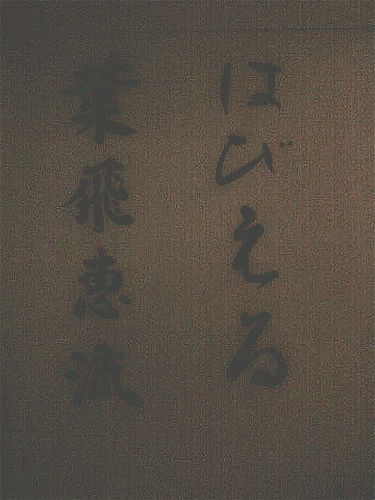 はびえる
葉飛恵流